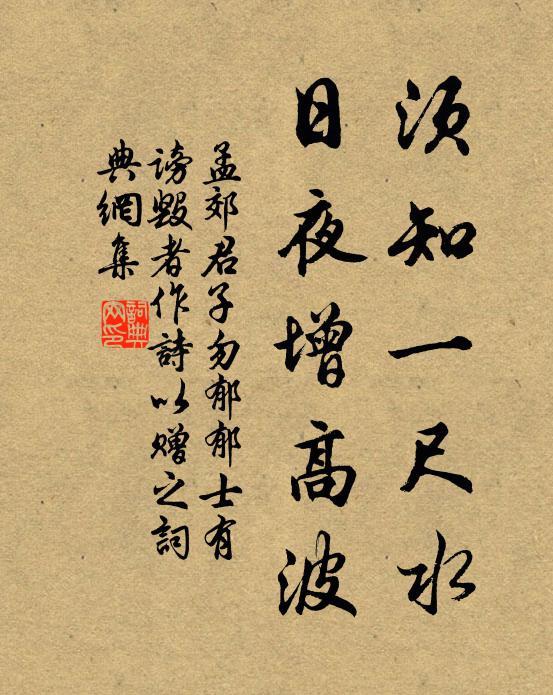 須知一尺水
日夜增高波
孟郊君子勿郁郁士有
謗毀者作詩以贈之詞
典網集
詞典
网印